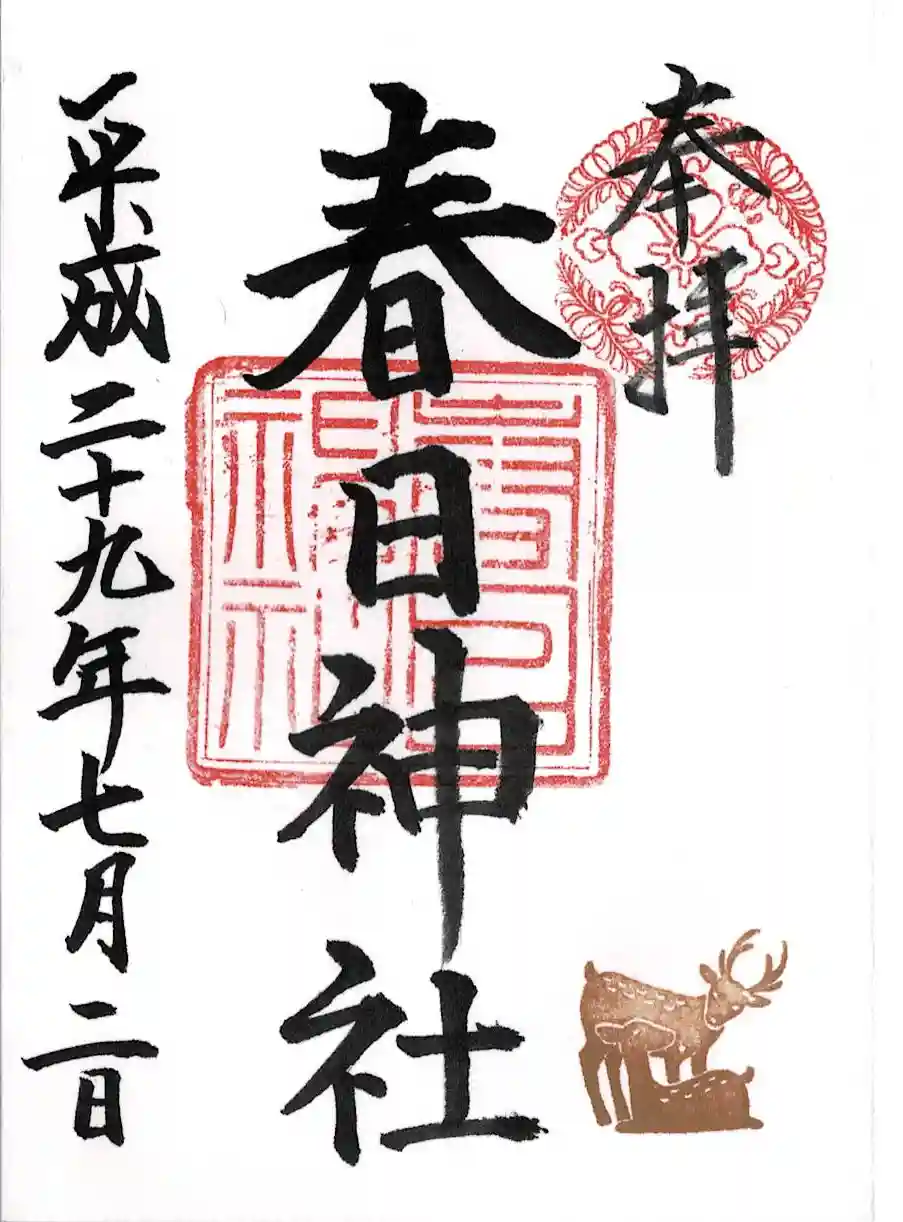 奉拝
春日神社
平成二十九年七月二日
春日神社